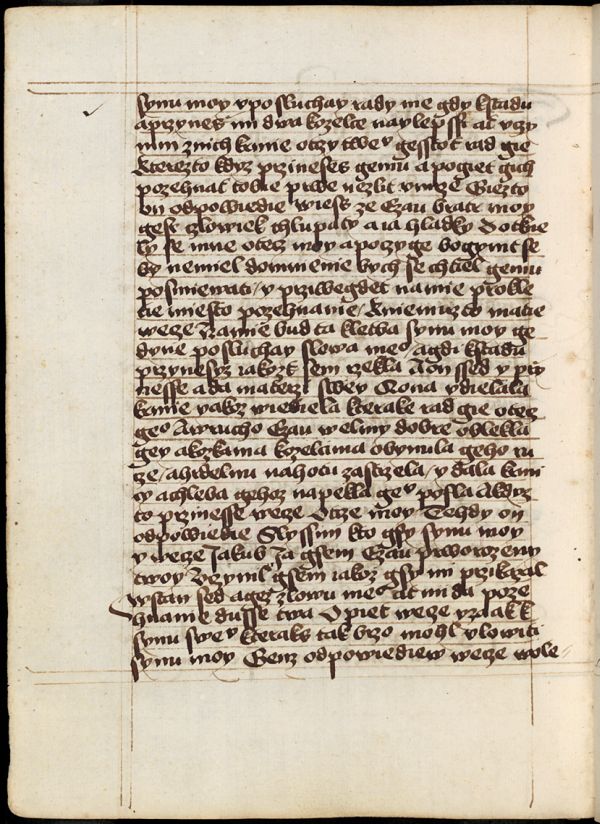 synu moy vposluchay rady me gdy kstadu
aprzynes mi dwa kozelce naylepssi at vczy
nim znich kmie otczy twe° gesstot rad gie
kterezto kdyz przineses gemu a pogiet gich
pozehnat tobie prwe nezlit vmrze Giezto
on odpowiedie wiess ze Ezau bratr moy
gest czlowiek chlupaty a ia hladky Dotkne
ly se mne otecz moy apoczyge bogymt se
by nemiel domnienie bych se chtiel gemu
posmiewati / y prziwegdet namie prokle
tie miesto pozehnanie / kniemuzto matie
wece Namie bud ta kletba synu moy ge
dyne posluchay slowa me° agdi kstadu
przynescz iakozt sem rzekla Aon ssed y przy
nesse ada materzi swey Aona vdielala
kmie yakoz wiediela kterake rad gie otecz
ge° Awrucho Ezau welmy dobre oblekla
gey akozkama kozelcima obynula geho ru
cze / ahrdelnu nahotu zastrzela / y dala kmi
cy achleba gehoz napekla ge° posla Akdyz
to przinesse wece Otcze moy Tehdy on
odpowiedie Slyssim kto gsy synu moy
y wece Jakub Ja gsem Ezau prworozeny
twoy Vczynil gsem iakoz gsy mi przikazal
wstan sed agez zlowu me° at mi da poze
hnanie dusse twa Opiet wece yzaak k
synu swe° kteraks tak brzo mohl vlowiti
synu moy Genz odpowiediew wece wole